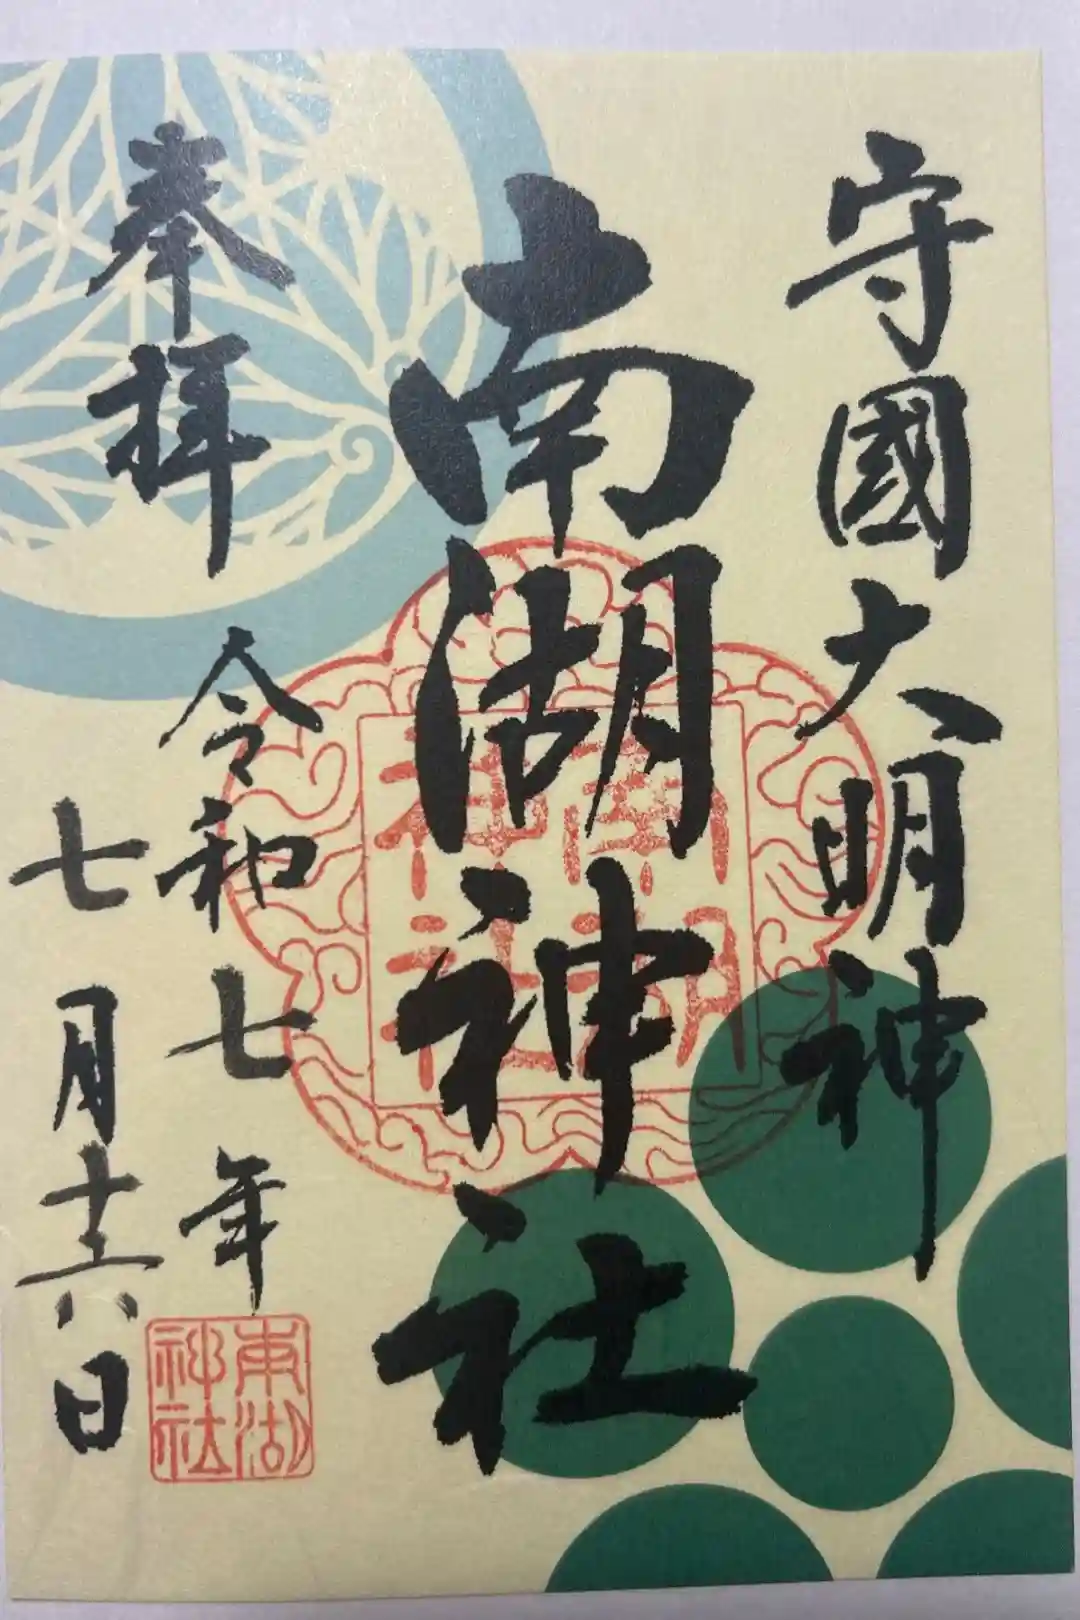 守國大明神
南湖神社
奉拝
令和七年
七月十六日
南湖
神社